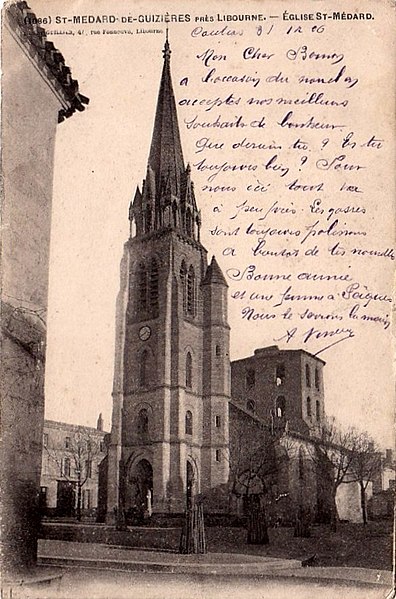 (1086) ST-MEDARD-DE-GUIZIÈRES PRÈS LIBOURNE. — ÉGLISE ST-MÉDARD.
rue Fonneuve, Libourne
31 12 06
Mon Cher
a l'occasion du nouvel an
acceptes nos meilleurs
souhaits de bonheur.
Que deviens tu ? Es tu
toujours bien ? Pour
nous ici tout va
à peu près. Les gosses
sont toujours polissons
a bientot de tes nouvelles
Bonne année
et une femme à Pâques
Nous te serrons la main
A